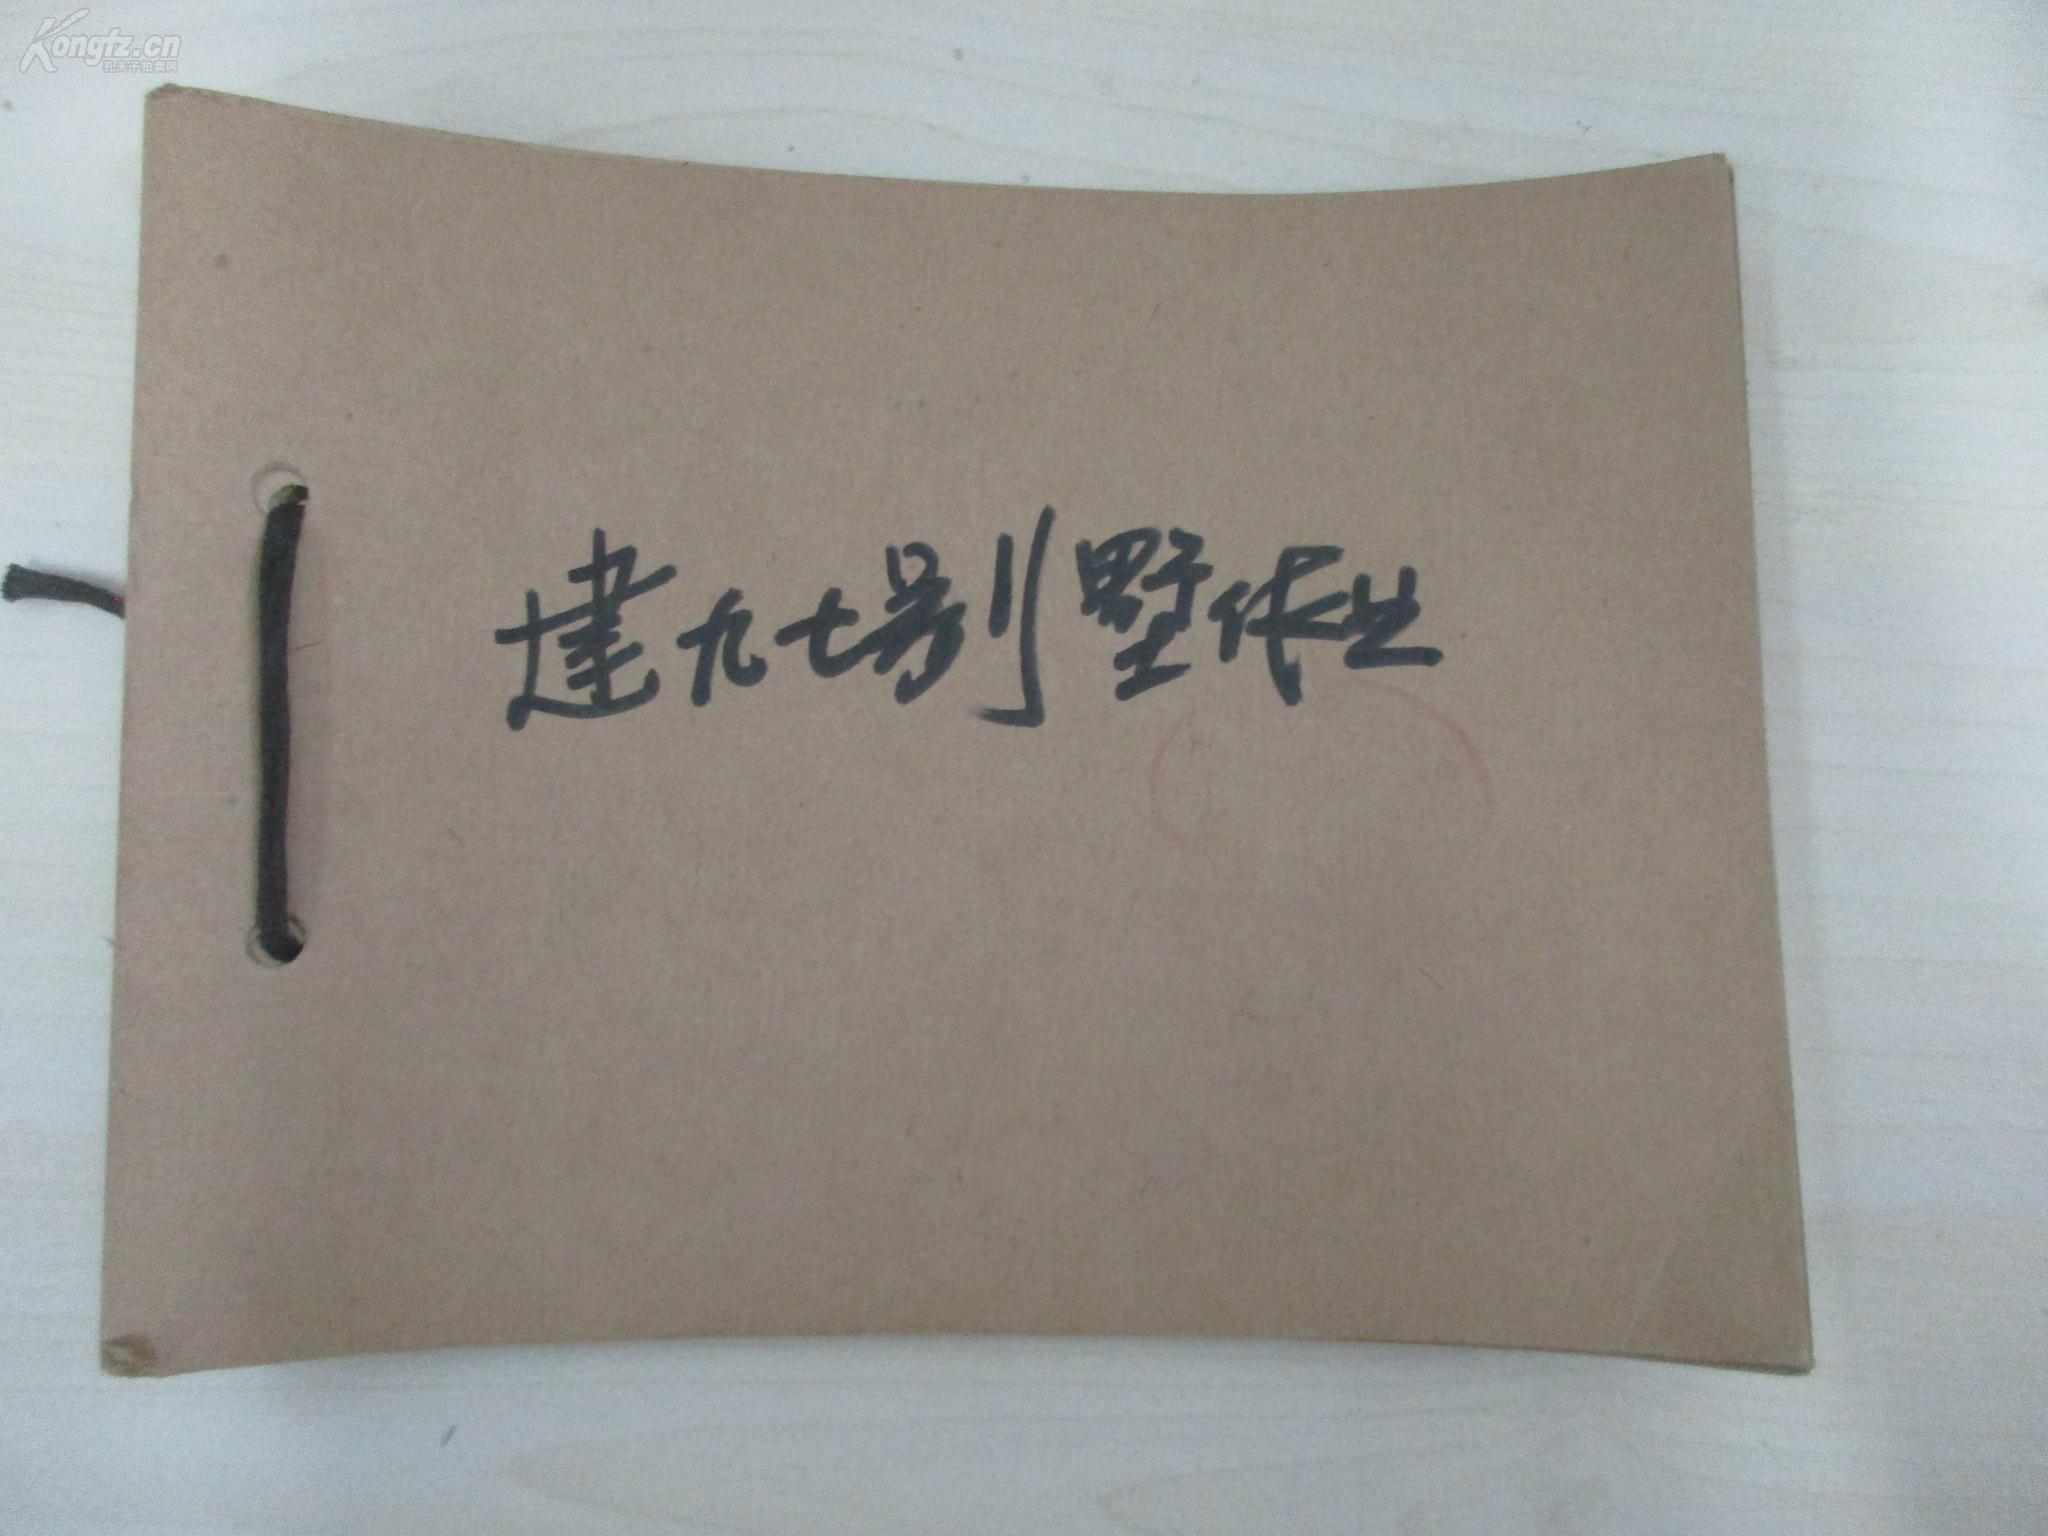 Kongfz.cn
孔夫子拍卖网
建九七别墅作业